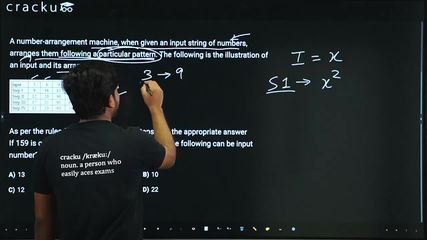 cracku
A number-arrangement machine, when given an input string of numbers,
arranges them following a particular pattern. The following is the illustration of
an input and its arra
3 → 9
I = x
S1 → x²
As per the rule
the appropriate answer
If 159 is o
the following can be input
number
A) 13
B) 10
C) 12
D) 22
cracku /kræku:/
noun. a person who
easily aces exams